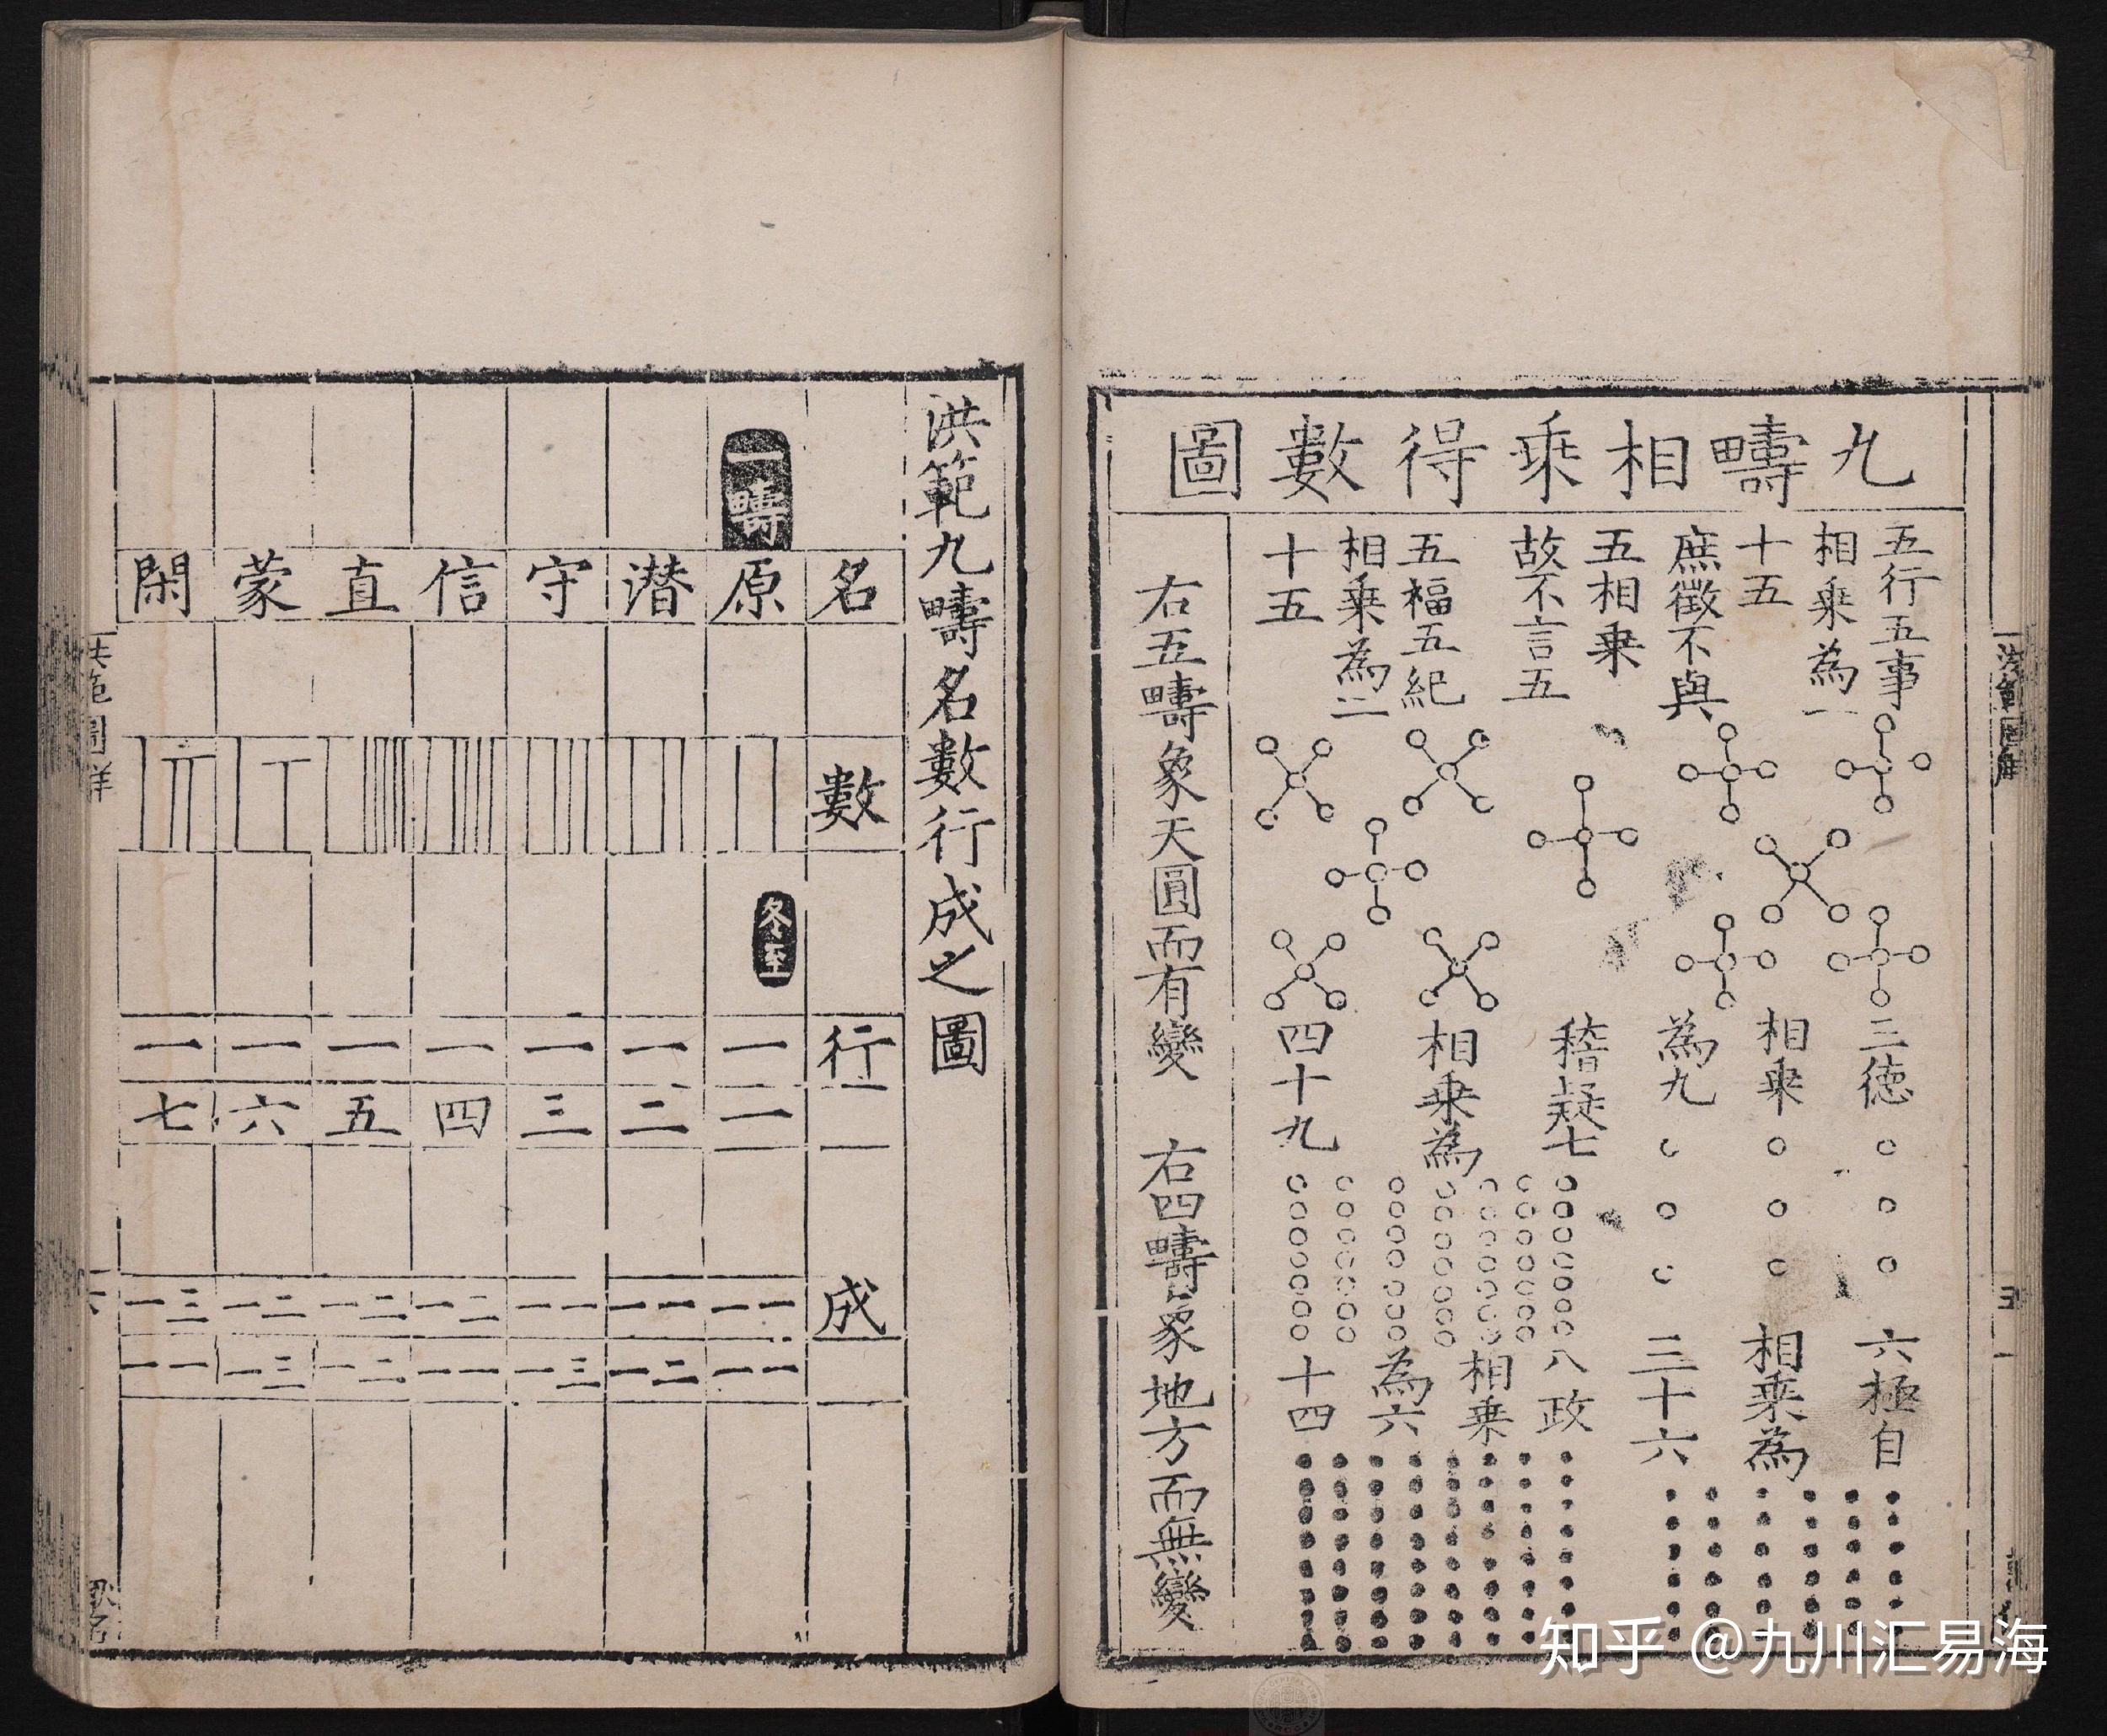 九疇相乘得數圖
五行五事
相乘為一
十五
庶徵不與
五相乗
故不言五
五福五紀
相乗為二
十五
三徳
相乗
為九
稽疑七
相乗為
四十九
六極自
相乗為
三十六
八政
相乗
為六
十四
右五疇象天圓而有變
右四疇象地方而無變
洪範九疇名數行成之圖
名
數
行
成
一疇
原
冬至
一
一
一一
一一
潜
一
二
一一
一二
守
一
三
一一
一三
信
一
四
一二
一一
直
一
五
一二
一二
蒙
一
六
一二
一三
閑
一
七
一三
一一
知乎 @九川汇易海